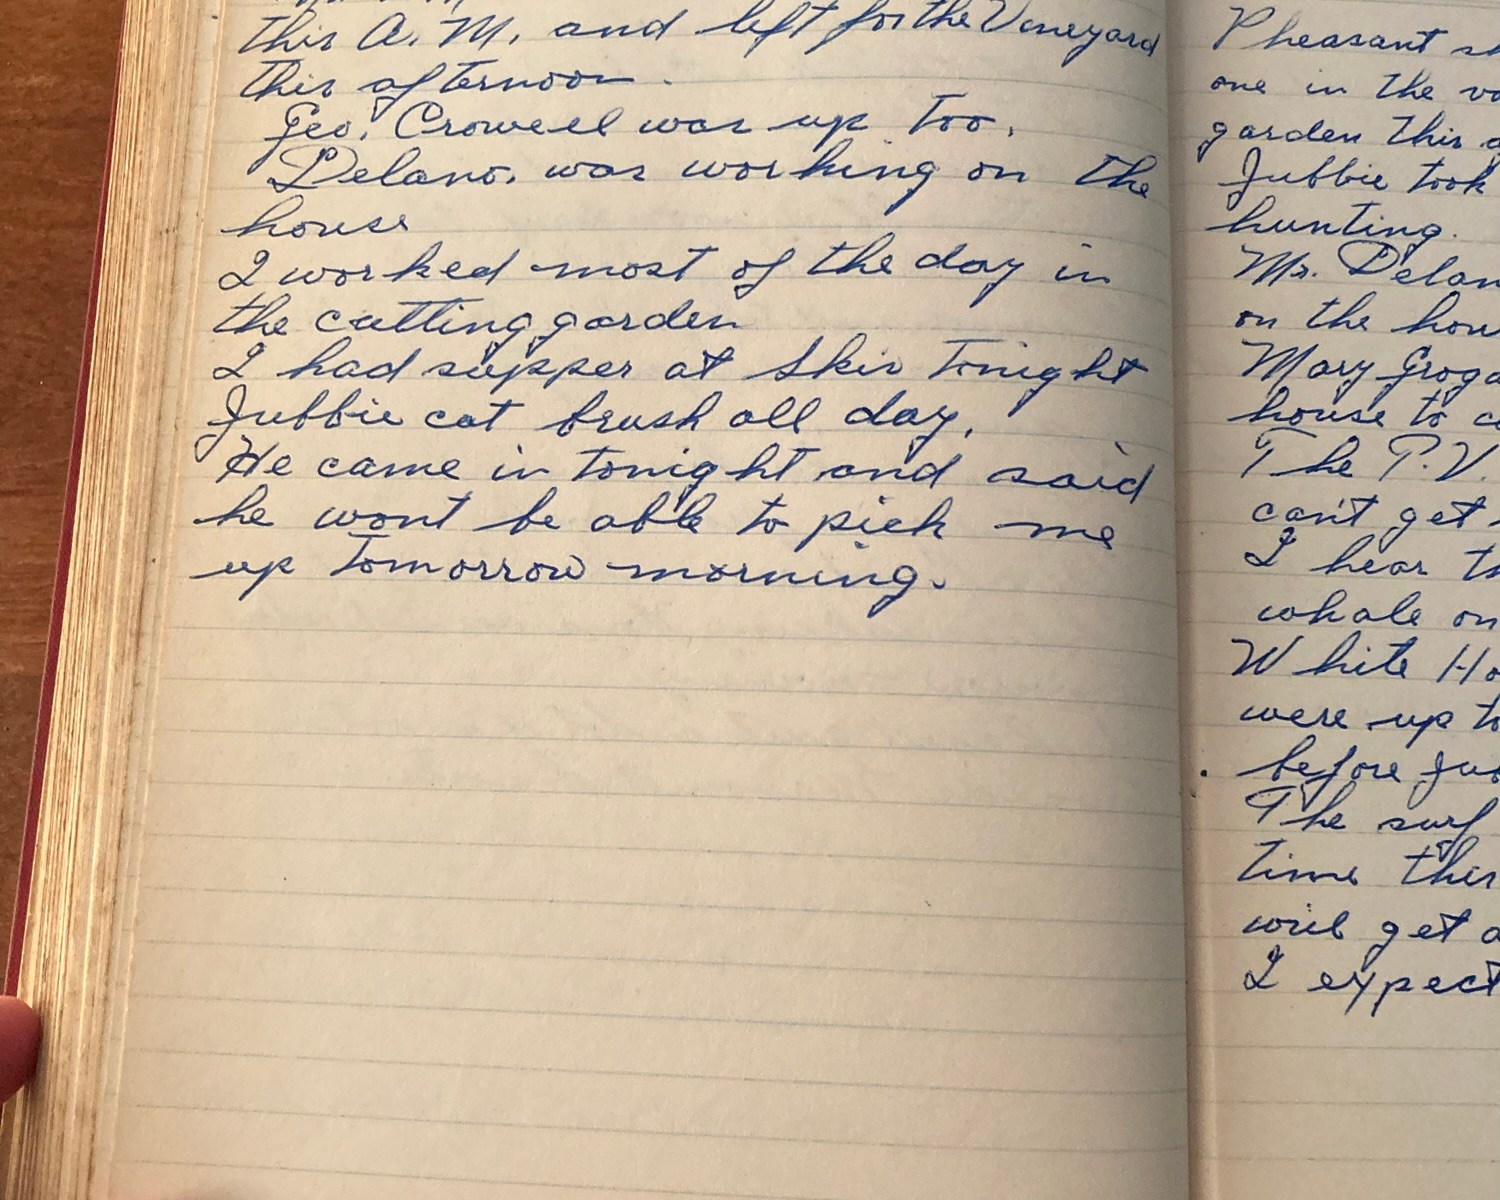 this A.M. and left for the Vineyard
this afternoon.
Geo. Crowell was up too.
Delano. was working on the
house
I worked most of the day in
the cutting garden
I had supper at Skir tonight
Jubbie cut brush all day.
He came in tonight and said
he wont be able to pick me
up tomorrow morning.
Pheasant
one in the
garden this
Jubbie took
hunting.
Mr. Delan
on the hou
Mary Groga
house to
The T.V.
can't get
I hear
whale on
White Ho
were up to
before Jub
The surf
time this
will get
I expect